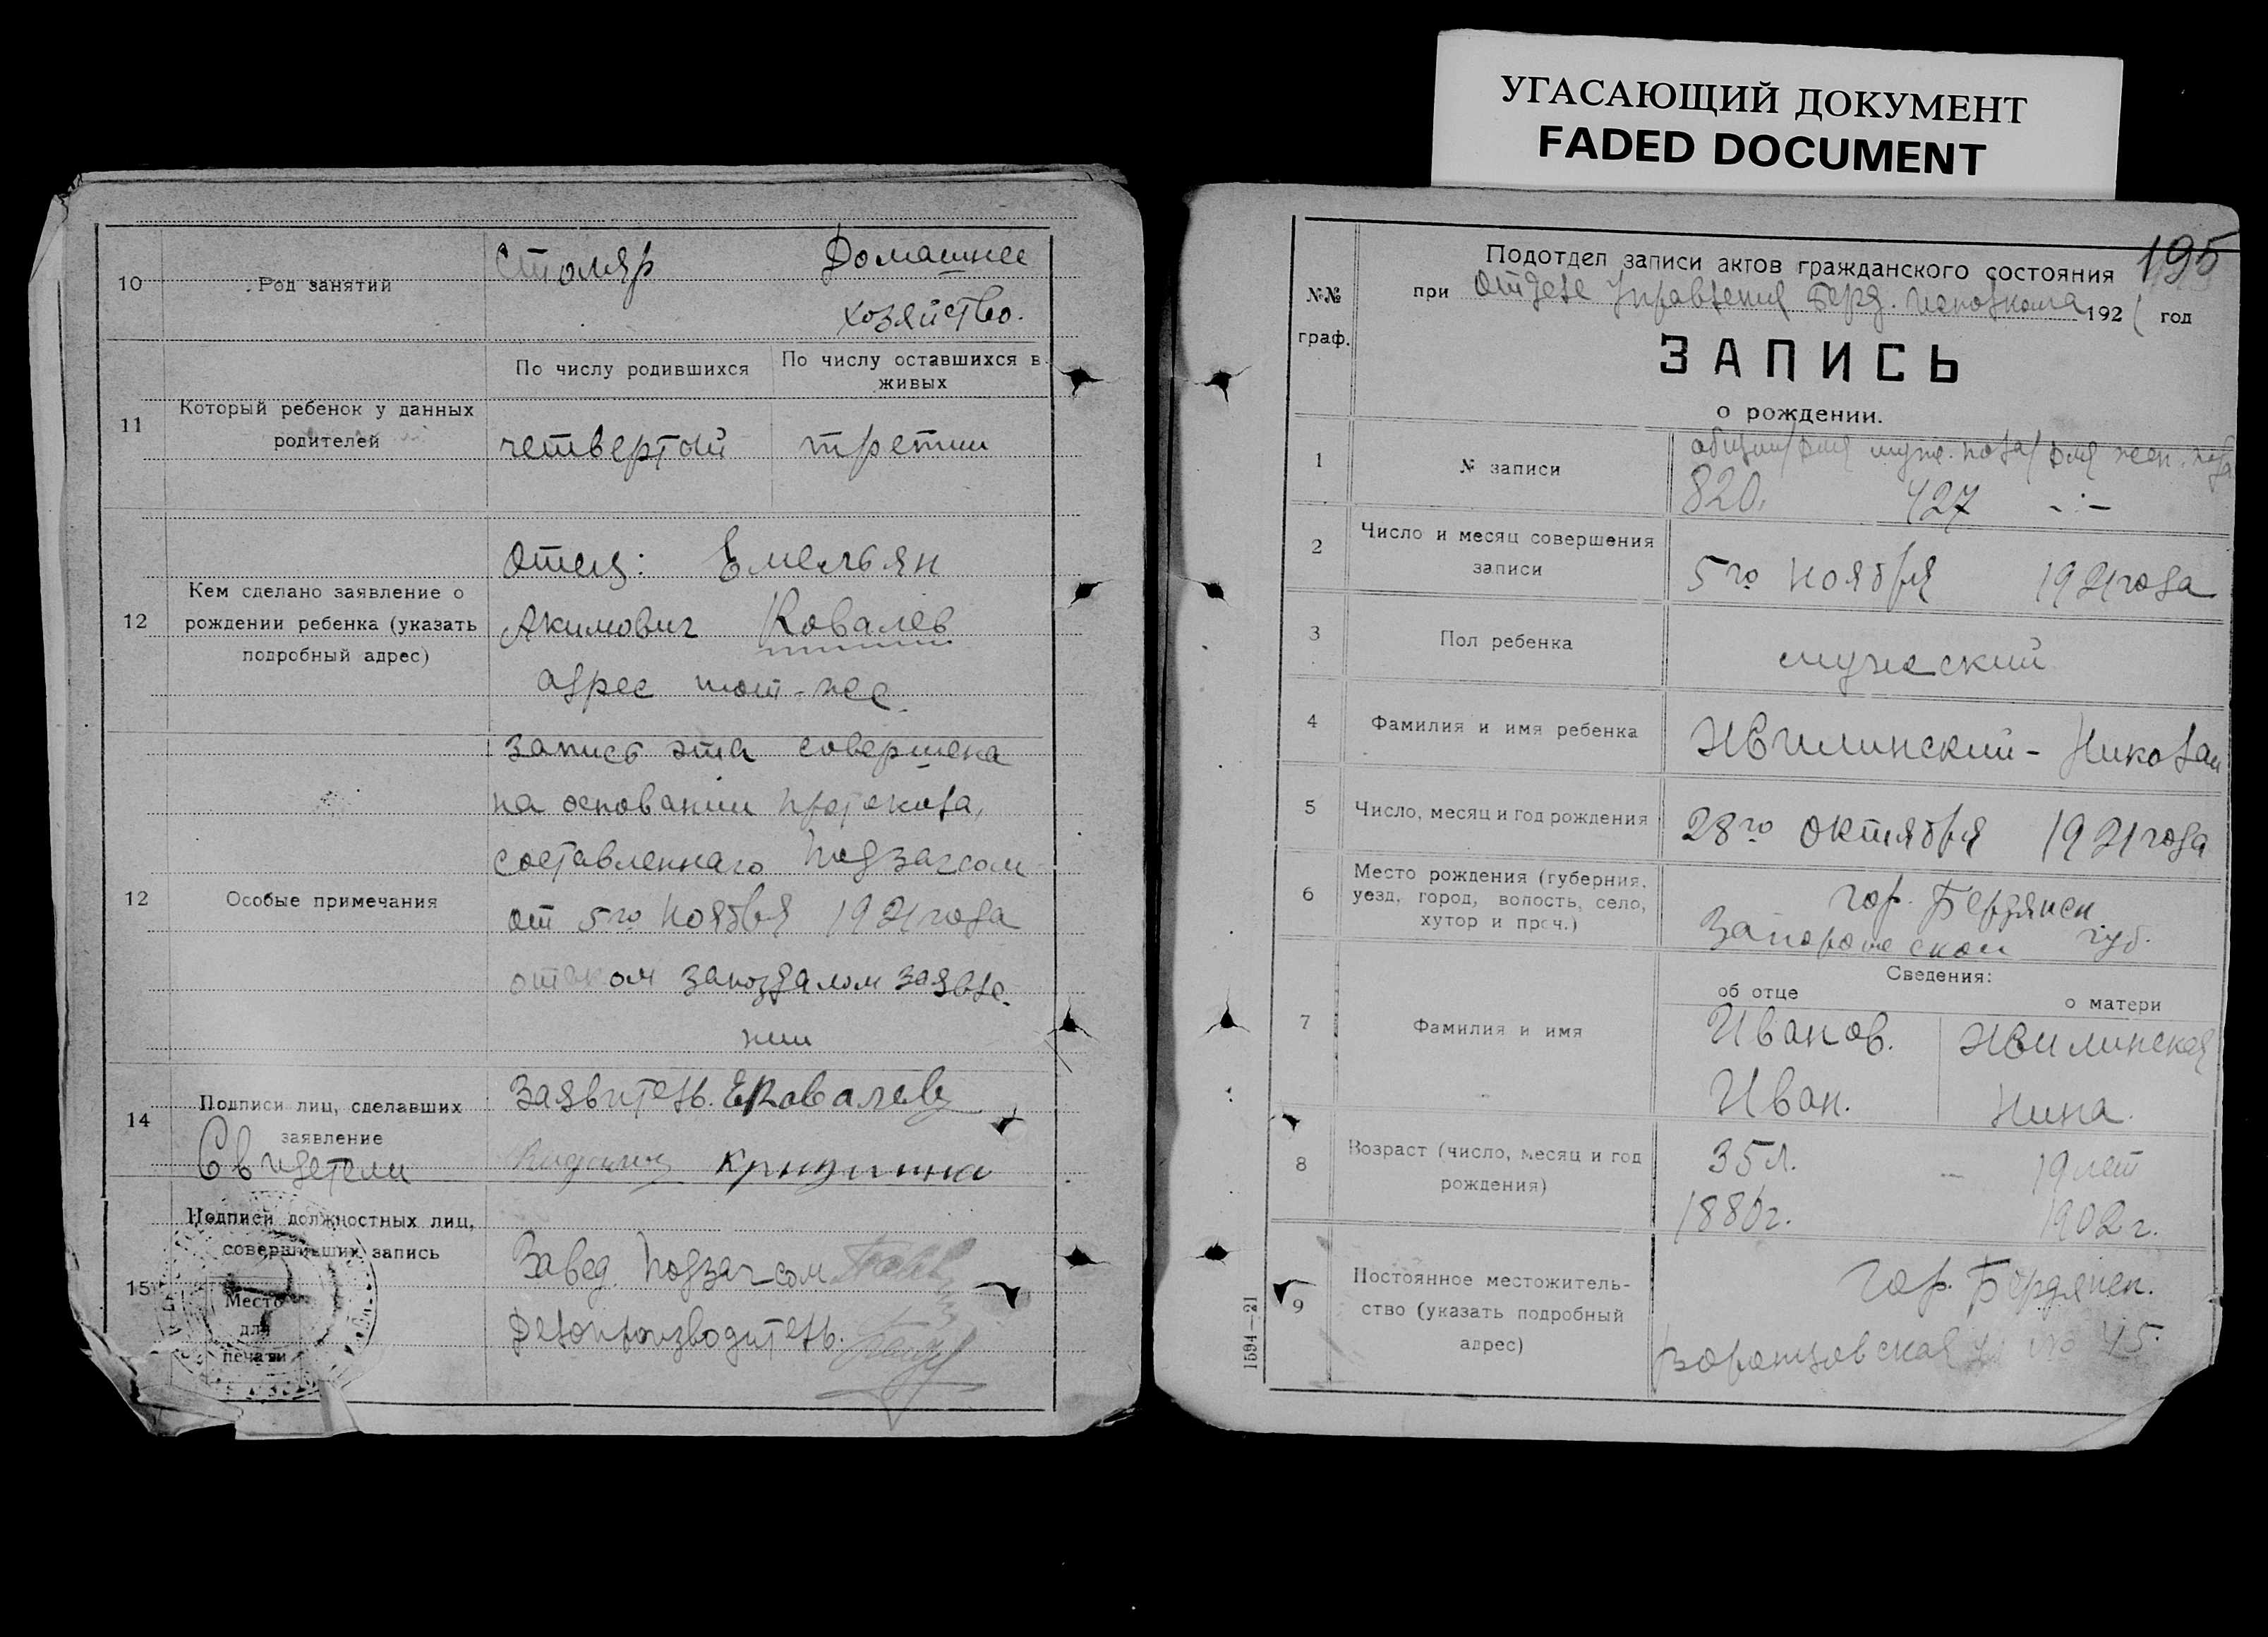 УГАСАЮЩИЙ ДОКУМЕНТ
FADED DOCUMENT
10
Род занятий
Столяр
Домашнее
хозяйство.
11
Который ребенок у данных
родителей
По числу родившихся
По числу оставшихся в
живых
четвертый
третии
12
Кем сделано заявление о
рождении ребенка (указать
подробный адрес)
Отец: Емельян
Акимович Ковалев
адрес тот-же.
12
Особые примечания
запись эта совершена
на основании протокола,
составленнаго Подзагсом
от 5го Ноября 1921 года
о запоздалом заявле-
нии
14
Подписи лиц, сделавших
заявление
Свидетели
Заявитель. ЕКовалев
15
Подписи должностных лиц,
совершивших запись
Место
для
печати
Завед. Подзагсом
Делопроизводитель.
195
№№
граф.
Подотдел записи актов гражданского состояния
при Отделе Управления Берд. Исполкома 1921 год
ЗАПИСЬ
о рождении.
1
№ записи
общий/для муже. пола/для жен. пола
820. 427 -:-
2
Число и месяц совершения
записи
5го Ноября 1921 года
3
Пол ребенка
мужеский
4
Фамилия и имя ребенка
Жвилинский - Николай
5
Число, месяц и год рождения
28го Октября 1921 года
6
Место рождения (губерния,
уезд, город, волость, село,
хутор и проч.)
гор. Бердянск
Запорожской губ.
Сведения:
об отце
о матери
7
Фамилия и имя
Иванов.
Иван.
Жвилинская
Нина.
8
Возраст (число, месяц и год
рождения)
35 л. - 19 лет
1886 г. 1902 г.
9
Постоянное местожитель-
ство (указать подробный
адрес)
гор. Бердянск.
Воронцовская ул. № 45.
1594—21